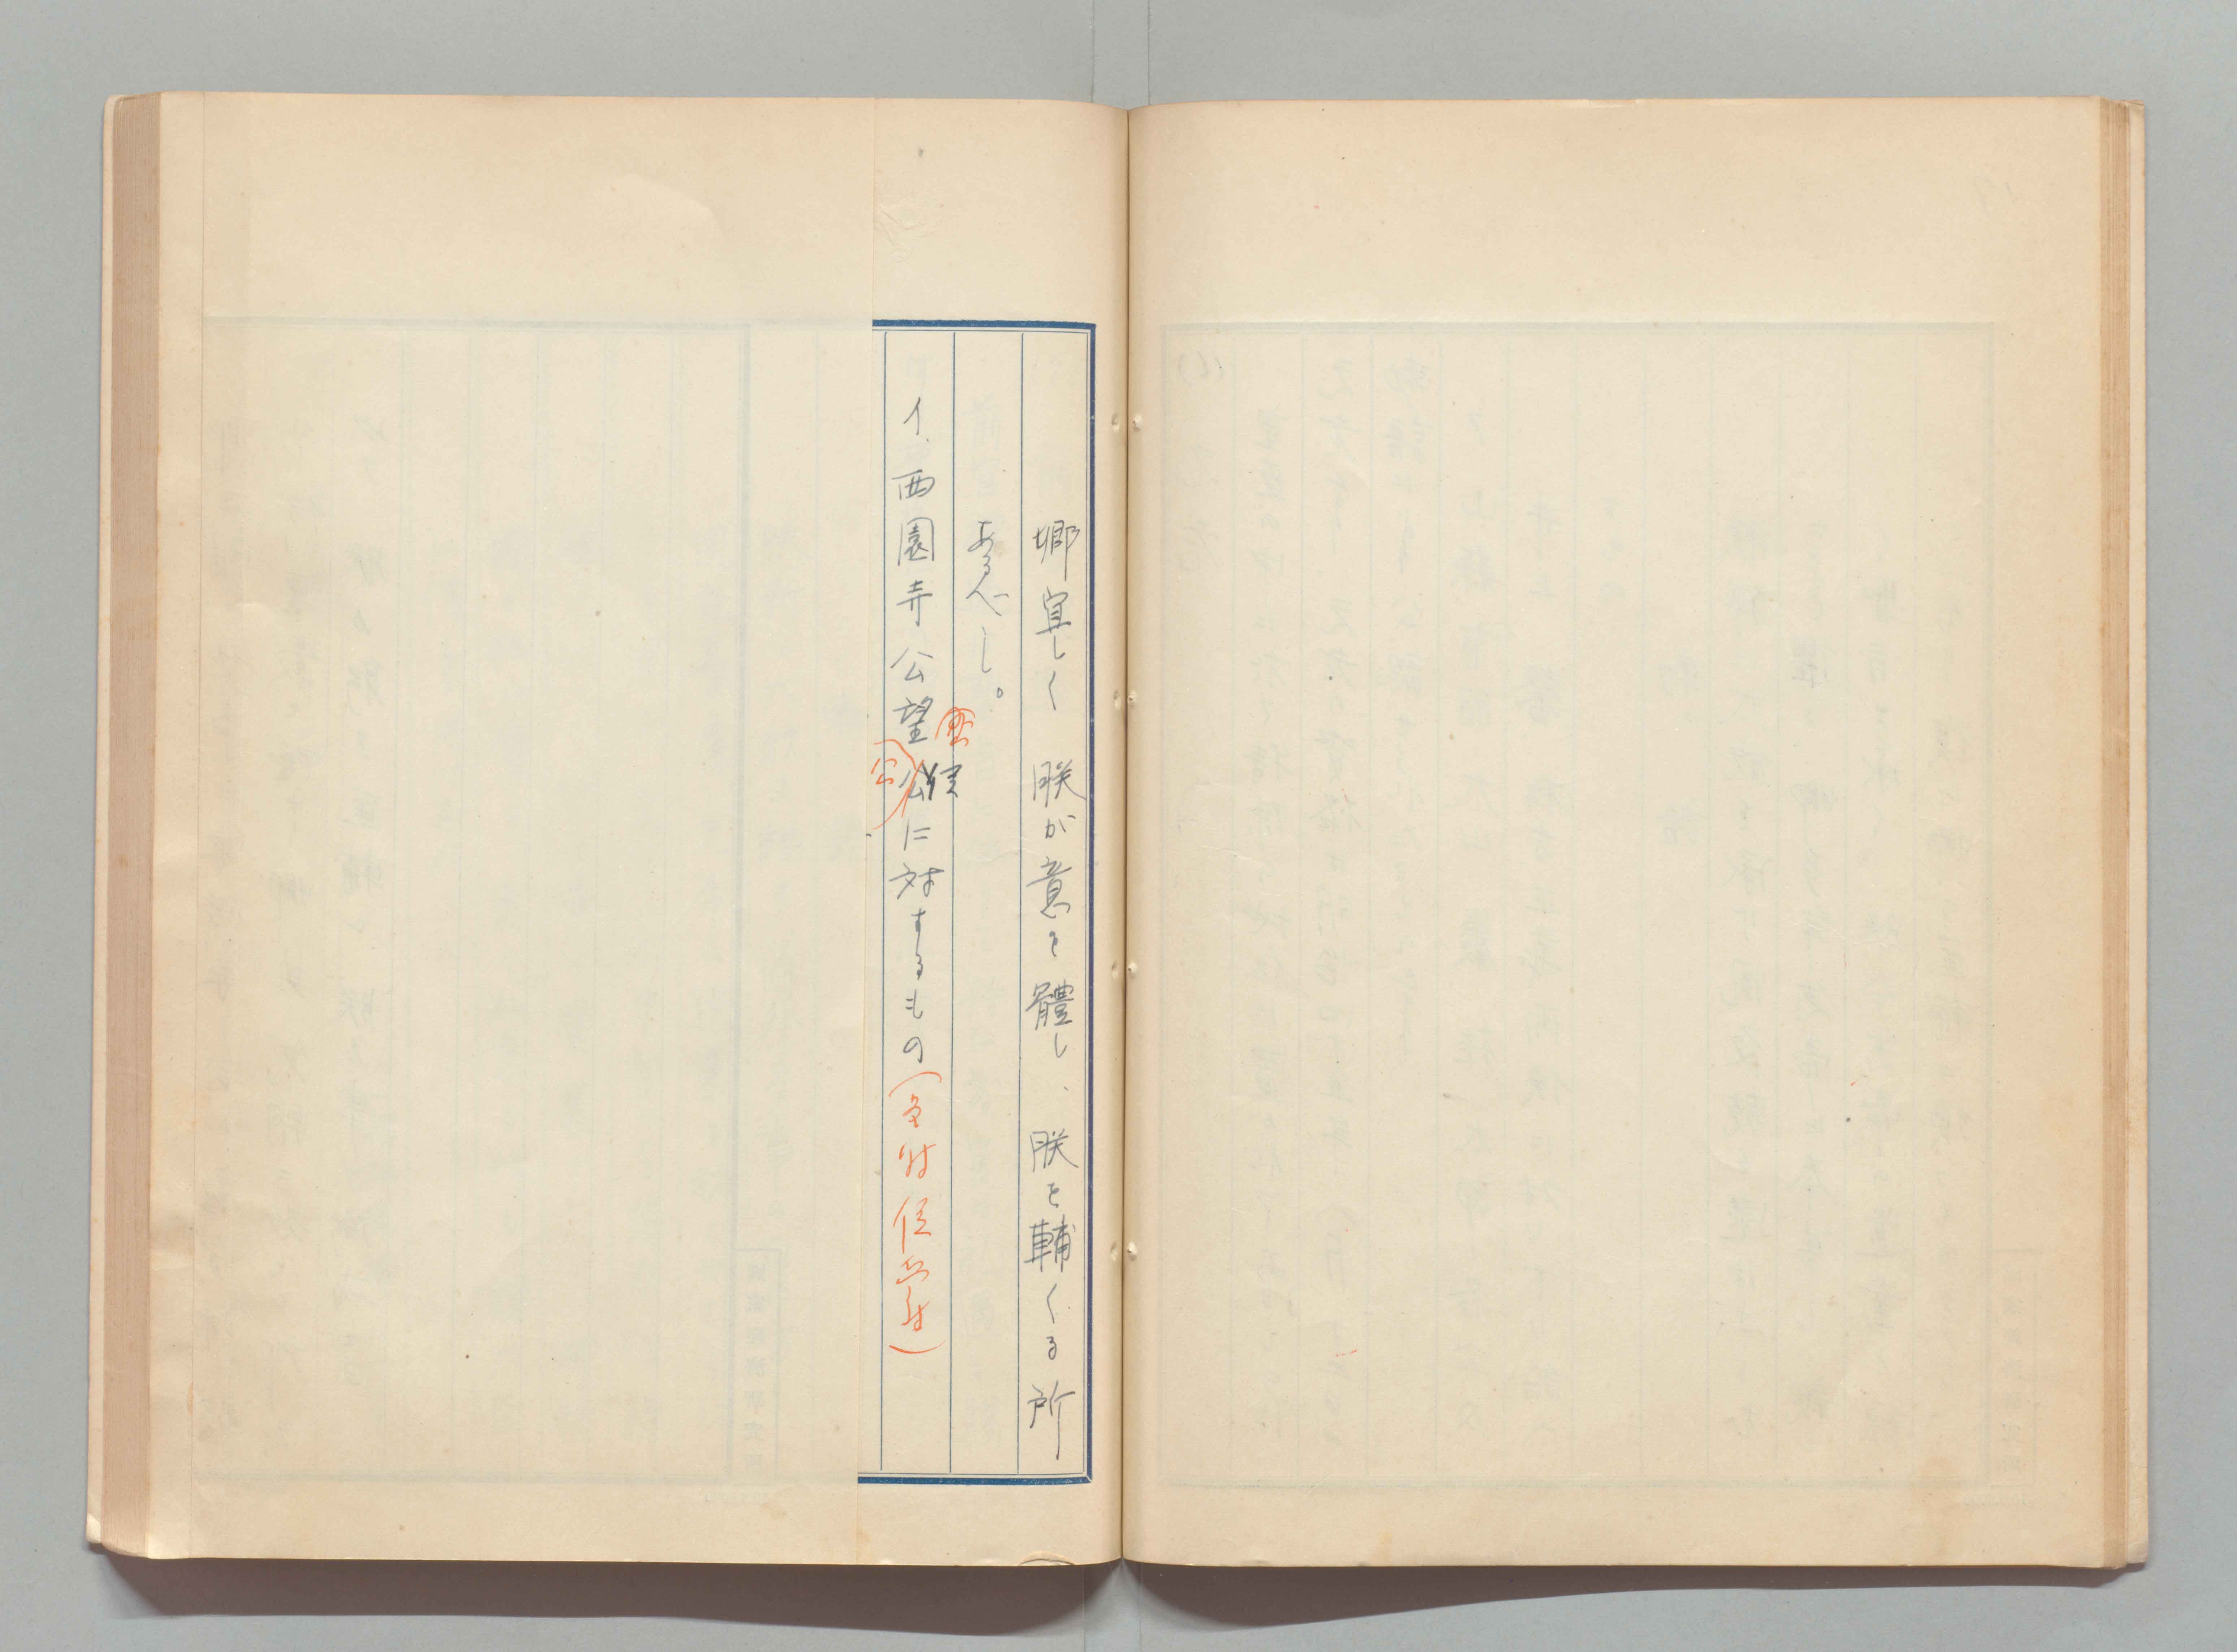 卿宜しく 朕が意を體し、朕を輔くる所
あるべし。
イ、西園寺公望公に対するもの